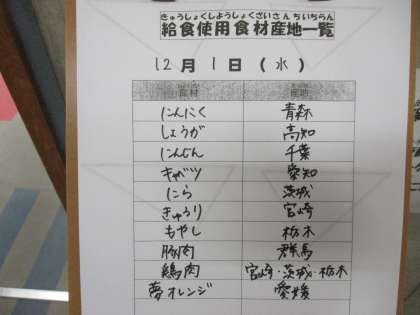 きゅうしょくしようしょくざいさんちいちらん
給食使用食材産地一覧
12月 1日 (水)
食材 産地
にんにく 青森
しょうが 高知
にんじん 千葉
キャベツ 愛知
にら 茨城
きゅうり 宮崎
もやし 栃木
豚肉 群馬
鶏肉 宮崎・茨城・栃木
夢オレンジ 愛媛